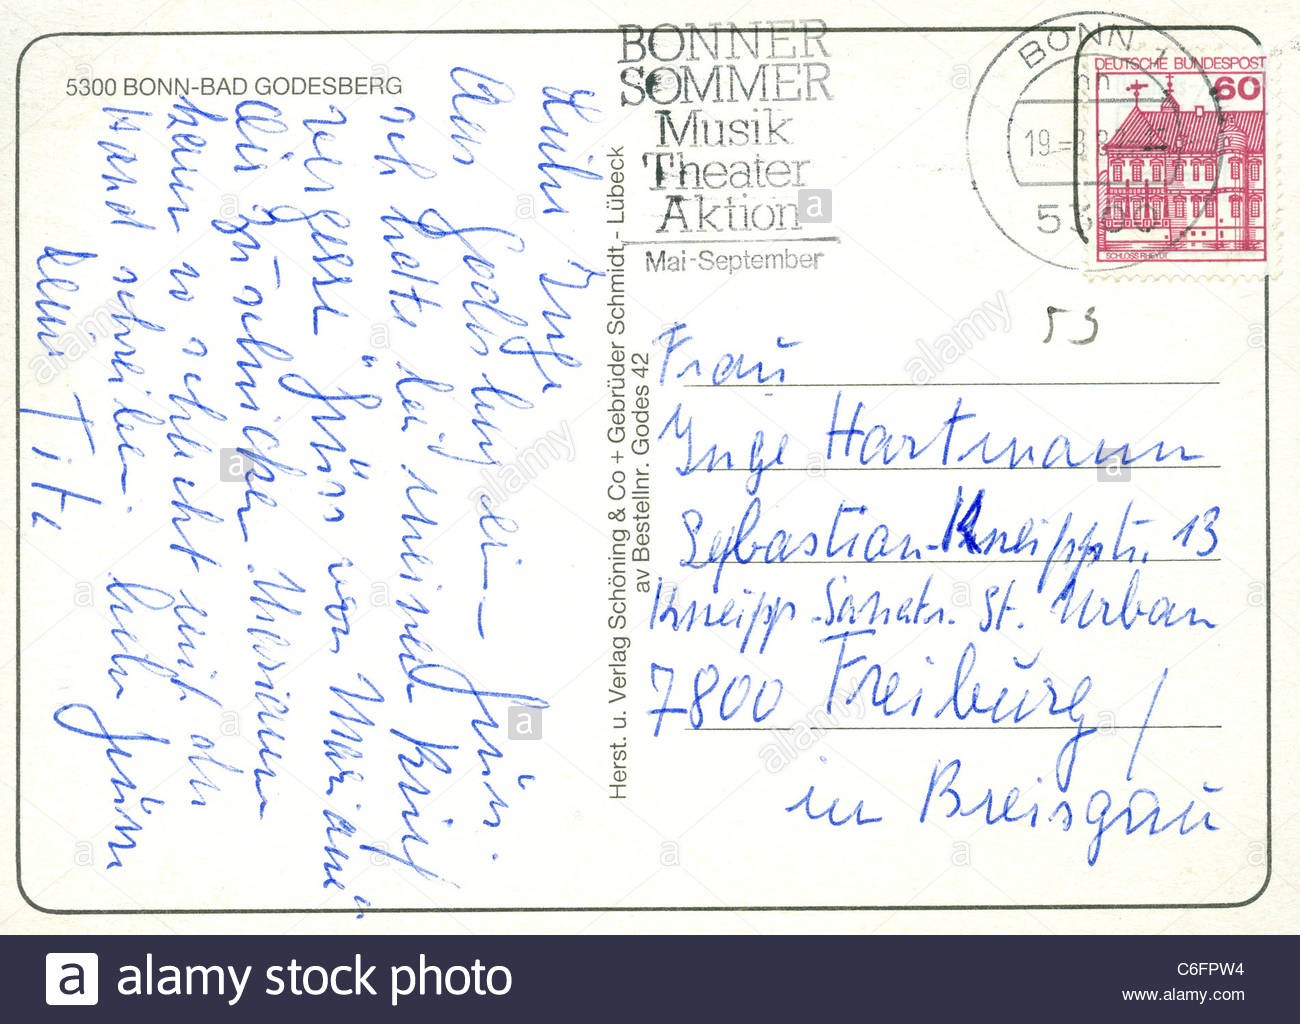 5300 BONN-BAD GODESBERG
Liebe Inge
Aus Godesberg ein Grüss.
ich hatte bei meinem Brief
vergesse Grüss von Mariane
dir zu schicken. Mariane
kann so schlecht mit der
Hand schreiben. liebe Grüsse
Deine Tite
Herst. u. Verlag Schöning & Co + Gebrüder Schmidt - Lübeck
av Bestellnr. Godes 42
BONNER
SOMMER
Musik
Theater
Aktion
Mai-September
BONN 1
5300
DEUTSCHE BUNDESPOST
60
SCHLOSS RHEYDT
53
Frau
Inge Hartmann
Sebastian-Kneippstr. 13
Kneipp-Sanatr. St. Urban
7800 Freiburg /
in Breisgau
alamy
a alamy stock photo
C6FPW4
www.alamy.com